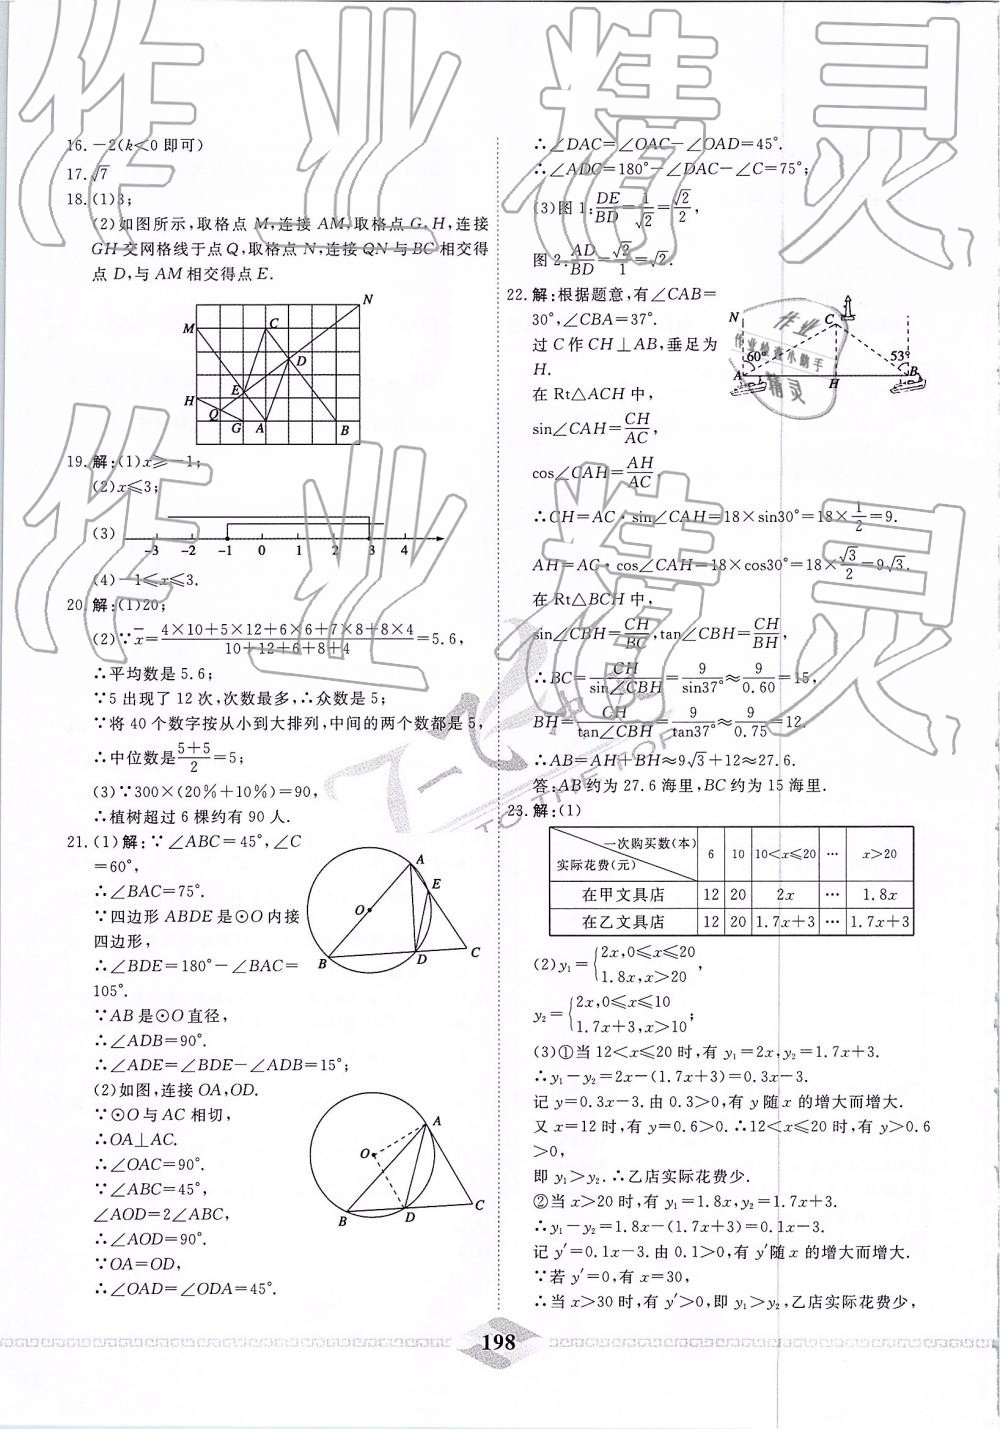 16. －2(k＜0 即可)
17. √7
18. (1)3;
(2)如图所示,取格点 M,连接 AM,取格点 G,H,连接
GH 交网格线于点 Q,取格点 N,连接 QN 与 BC 相交得
点 D,与 AM 相交得点 E.
M C N D E H Q G A B
19. 解:(1)x≥－1;
(2)x≤3;
(3) －3 －2 －1 0 1 2 3 4
(4)－1≤x≤3.
20. 解:(1)20;
(2)∵x̄＝(4×10＋5×12＋6×6＋7×8＋8×4)/(10＋12＋6＋8＋4)＝5.6,
∴平均数是 5.6;
∵5 出现了 12 次,次数最多,∴众数是 5;
∵将 40 个数字按从小到大排列,中间的两个数都是 5,
∴中位数是(5＋5)/2＝5;
(3)∵300×(20％＋10％)＝90,
∴植树超过 6 棵约有 90 人.
21. (1)解:∵∠ABC＝45°,∠C
＝60°,
∴∠BAC＝75°.
∵四边形 ABDE 是⊙O 内接
四边形,
∴∠BDE＝180°－∠BAC＝
105°.
∵AB 是⊙O 直径,
∴∠ADB＝90°.
∴∠ADE＝∠BDE－∠ADB＝15°;
A E O B D C
(2)如图,连接 OA,OD.
∵⊙O 与 AC 相切,
∴OA⊥AC.
∴∠OAC＝90°.
∵∠ABC＝45°,
∠AOD＝2∠ABC,
∴∠AOD＝90°.
∵OA＝OD,
∴∠OAD＝∠ODA＝45°.
A O B D C
∴∠DAC＝∠OAC－∠OAD＝45°.
∴∠ADC＝180°－∠DAC－∠C＝75°;
(3)图 1:DE/BD＝1/√2＝√2/2,
图 2:AD/BD＝√2/1＝√2.
22. 解:根据题意,有∠CAB＝
30°,∠CBA＝37°.
过 C 作 CH⊥AB,垂足为
H.
在 Rt△ACH 中,
N C 60° 53° A H B
sin∠CAH＝CH/AC,
cos∠CAH＝AH/AC.
∴CH＝AC·sin∠CAH＝18×sin30°＝18×1/2＝9.
AH＝AC·cos∠CAH＝18×cos30°＝18×√3/2＝9√3.
在 Rt△BCH 中,
sin∠CBH＝CH/BC,tan∠CBH＝CH/BH,
∴BC＝CH/sin∠CBH＝9/sin37°≈9/0.60＝15,
BH＝CH/tan∠CBH＝9/tan37°≈9/0.75＝12.
∴AB＝AH＋BH≈9√3＋12≈27.6.
答:AB 约为 27.6 海里,BC 约为 15 海里.
23. 解:(1)
一次购买数(本) 6 10 10＜x≤20 … x＞20
实际花费(元)
在甲文具店 12 20 2x … 1.8x
在乙文具店 12 20 1.7x＋3 … 1.7x＋3
(2)y₁＝{2x,0≤x≤20
1.8x,x＞20,
y₂＝{2x,0≤x≤10
1.7x＋3,x＞10;
(3)①当 12＜x≤20 时,有 y₁＝2x,y₂＝1.7x＋3.
∴y₁－y₂＝2x－(1.7x＋3)＝0.3x－3.
记 y＝0.3x－3.由 0.3＞0,有 y 随 x 的增大而增大.
又 x＝12 时,有 y＝0.6＞0.∴12＜x≤20 时,有 y＞0.6
＞0,
即 y₁＞y₂.∴乙店实际花费少.
②当 x＞20 时,有 y₁＝1.8x,y₂＝1.7x＋3.
∴y₁－y₂＝1.8x－(1.7x＋3)＝0.1x－3.
记 y′＝0.1x－3.由 0.1＞0,有 y′随 x 的增大而增大.
∵若 y′＝0,有 x＝30,
∴当 x＞30 时,有 y′＞0,即 y₁＞y₂,乙店实际花费少,
198
作业精灵
作业精灵